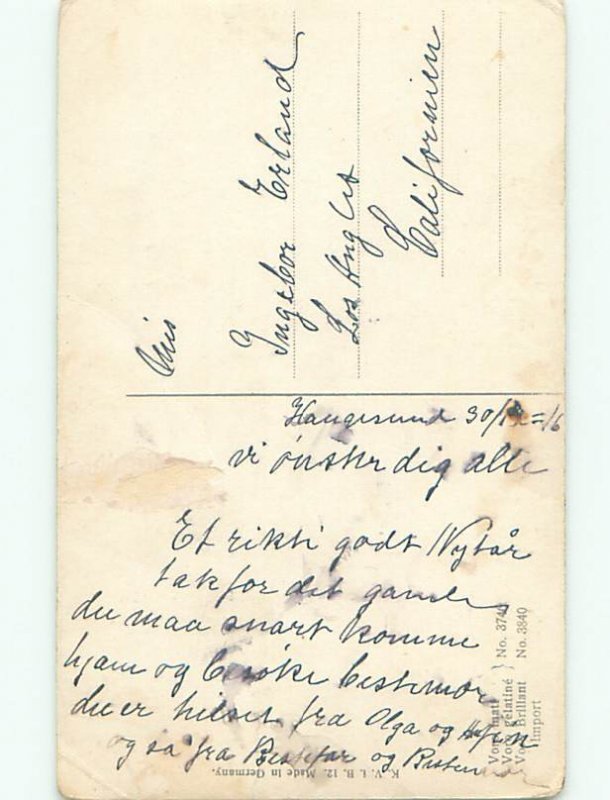 Mis
Ingebor Erland
Los Angles
Californien
Haugesund 30/12=16
vi ønsker dig alle
Et rikti godt Nytår
tak for det gamle
du maa snart komme
hjam og besøke bestemor
du er hilset fra Olga og
og så fra Bestefar og Bestemor
No. 3740
Vogel gélatiné
Brillant No. 3840
Import
K. V. i. B. 12. Made in Germany.